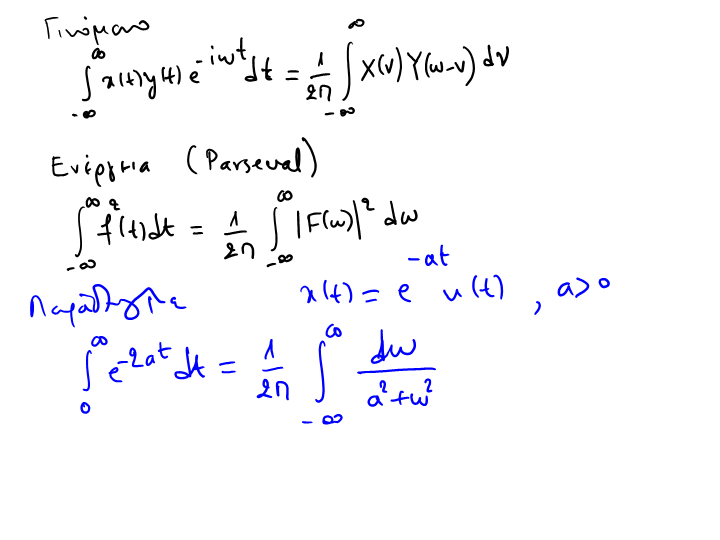 Γινόμενο
∫_{-∞}^{∞} x(t)y(t) e^{-iωt} dt = 1/2π ∫_{-∞}^{∞} X(v) Y(ω-v) dv
Ενέργεια (Parseval)
∫_{-∞}^{∞} f²(t)dt = 1/2π ∫_{-∞}^{∞} |F(ω)|² dω
Παράδειγμα x(t) = e^{-at} u(t) , a>0
∫_{0}^{∞} e^{-2at} dt = 1/2π ∫_{-∞}^{∞} dω/(a²+ω²)